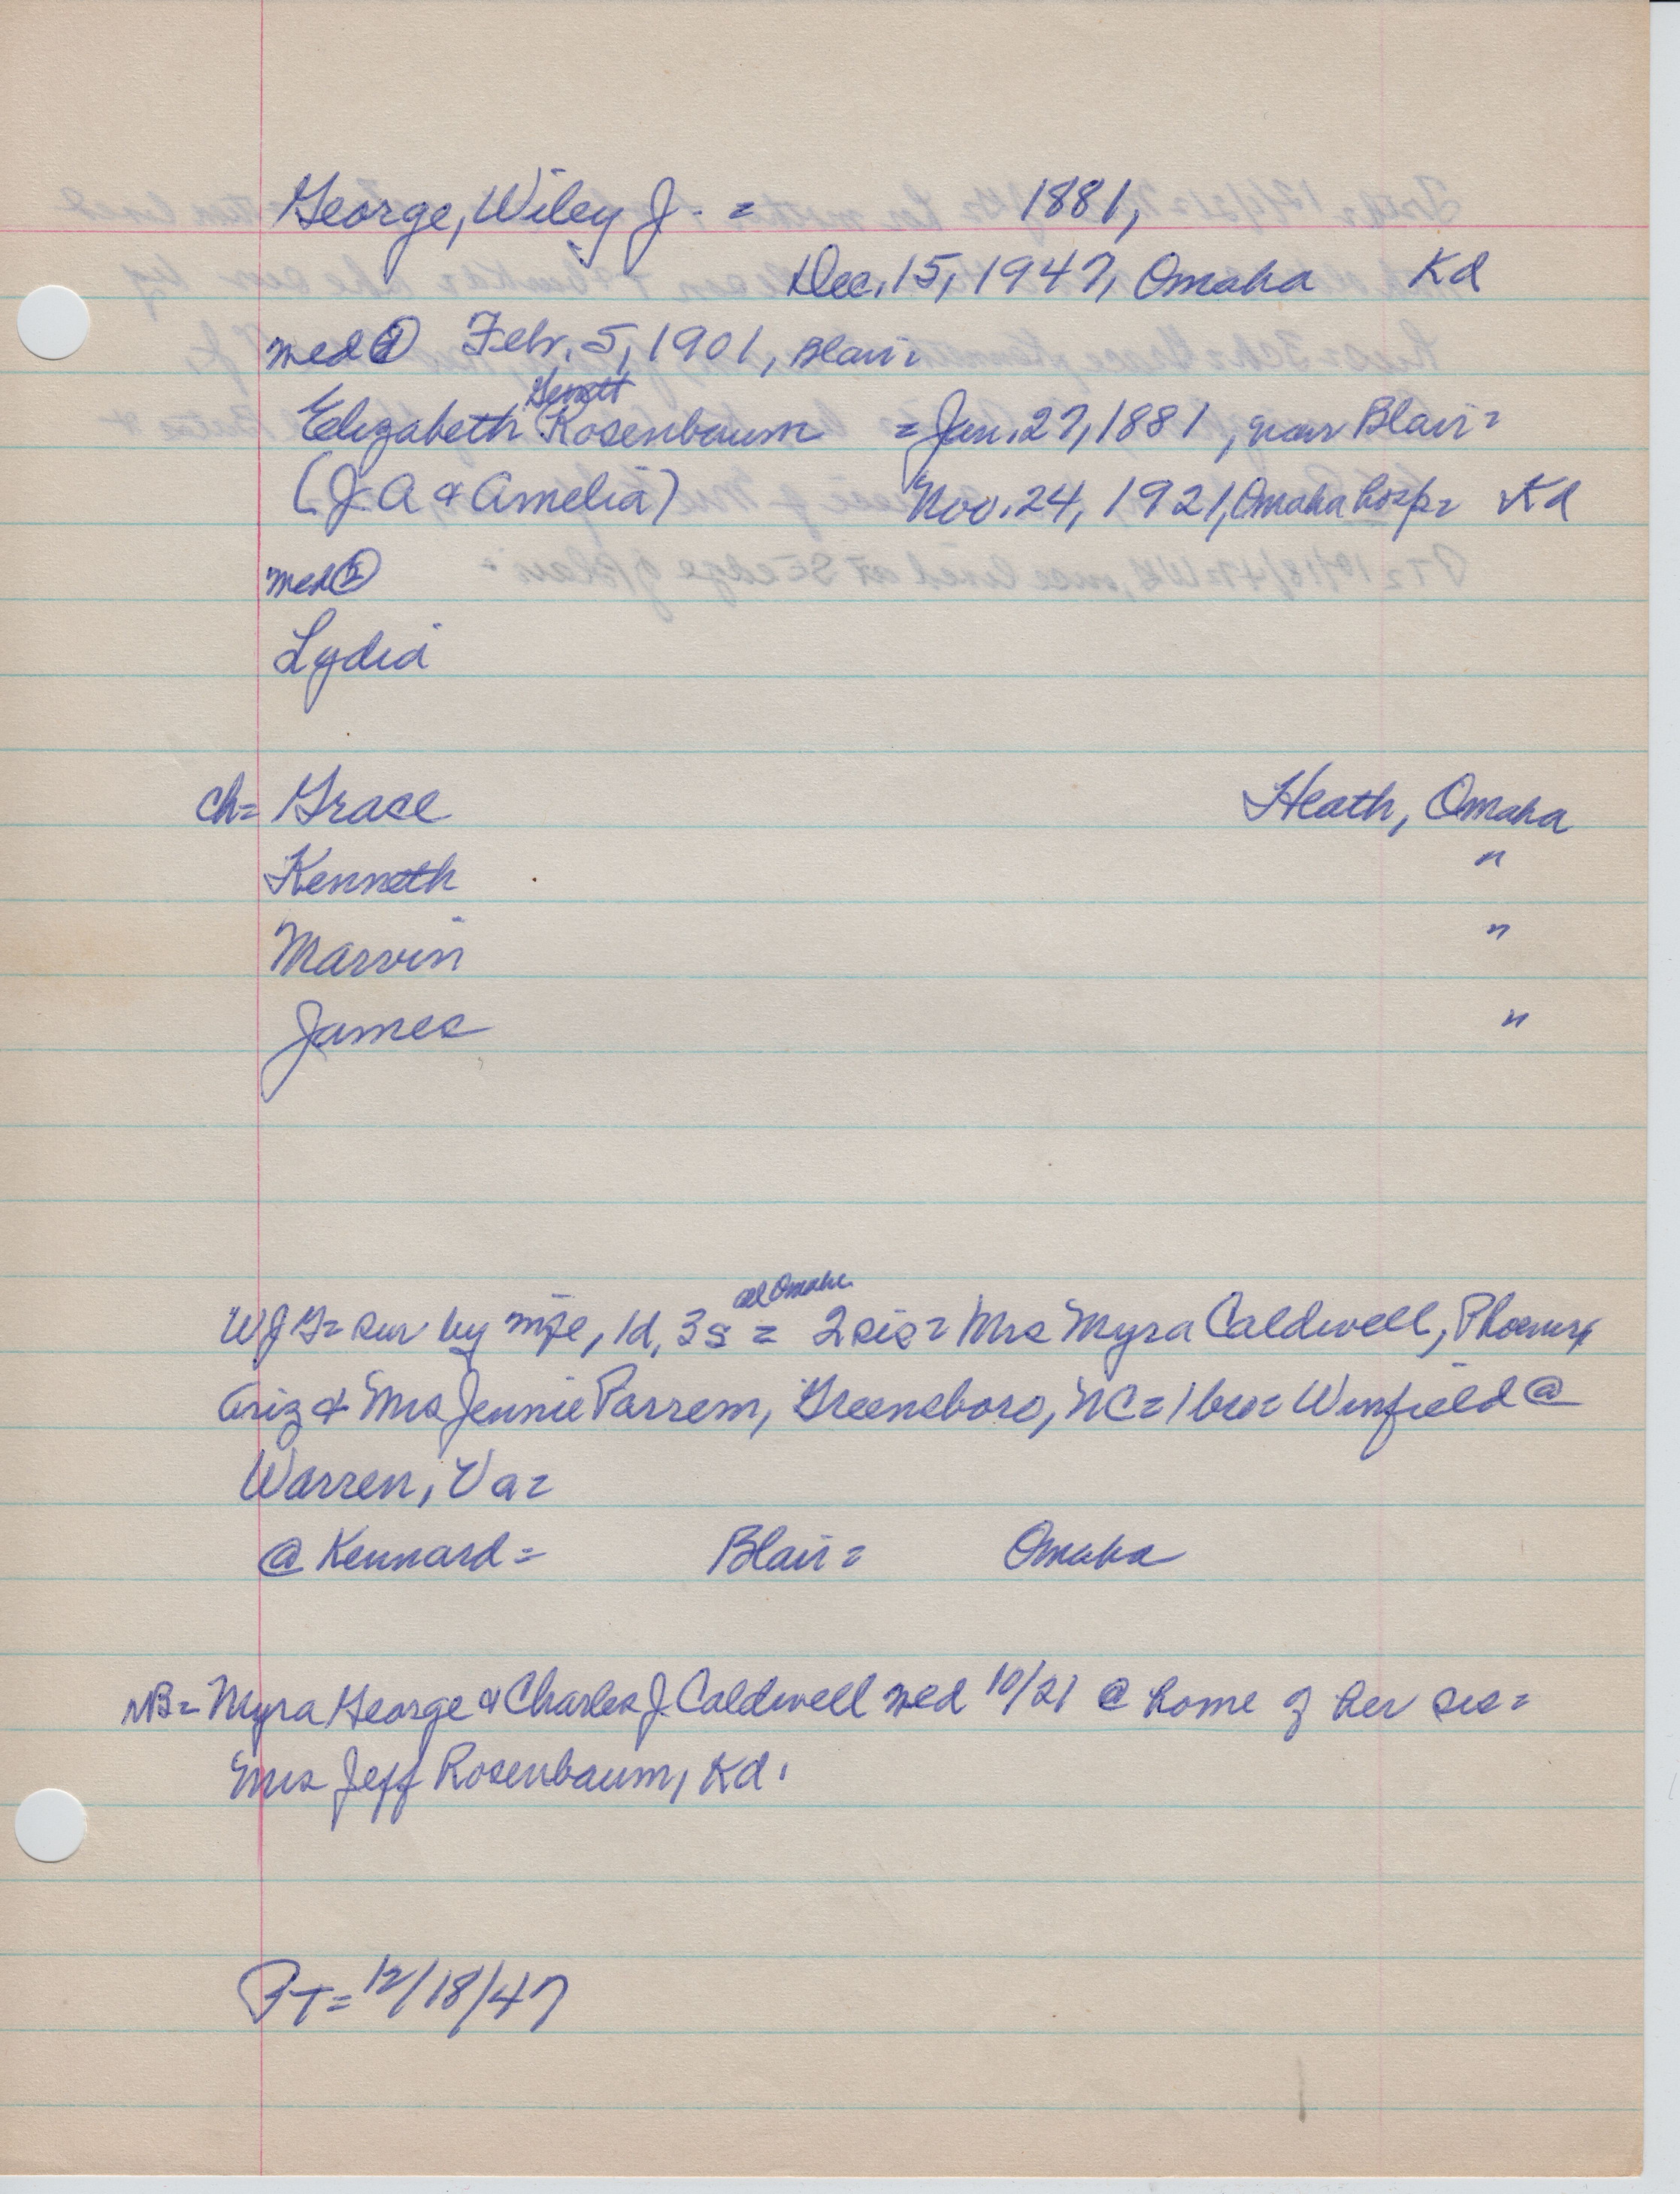 George, Wiley J. = 1881,
Dec. 15, 1947, Omaha Kd
med ① Febr. 5, 1901, Blair =
Elizabeth Rosenbaum = Jan. 27, 1881, near Blair =
(J. A & Amelia) Nov. 24, 1921, Omaha hosp = Kd
med ②
Lydia
ch = Grace Heath, Omaha
Kenneth "
Marvin "
James "
all Omaha
WJG = sur by wife, 1d, 3s = 2 sis = Mrs Myra Caldwell, Phoenix
Ariz & Mrs Jennie Parrem, Greensboro, NC = 1 bro = Winfield @
Warren, Va =
@ Kennard = Blair = Omaha
NB = Myra George & Charles J. Caldwell med 10/21 @ home of her sis =
Mrs Jeff Rosenbaum, Kd.
PT = 12/18/47